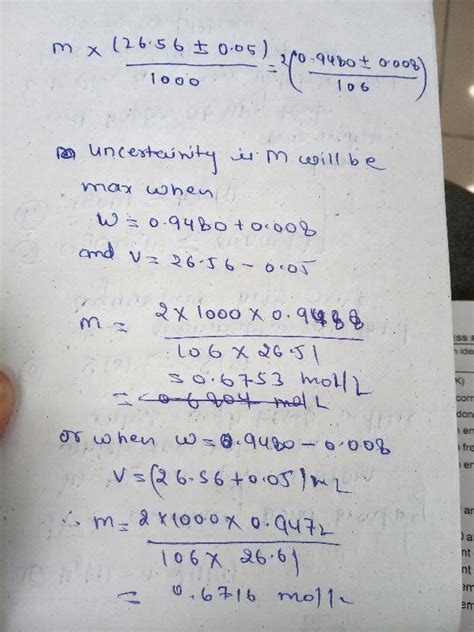 m × (26.56 ± 0.05) / 1000 = 2(0.9480 ± 0.008 / 106)
uncertainity is M will be
max when
W = 0.9480 + 0.008
and V = 26.56 - 0.05
m = 2 × 1000 × 0.9488 / 106 × 26.51
= 0.6753 mol/L
= 0.6804 mol L
or when W = 0.9480 - 0.008
V = (26.56 + 0.05) mL
∴ m = 2 × 1000 × 0.9472 / 106 × 26.61
= 0.6716 mol/L